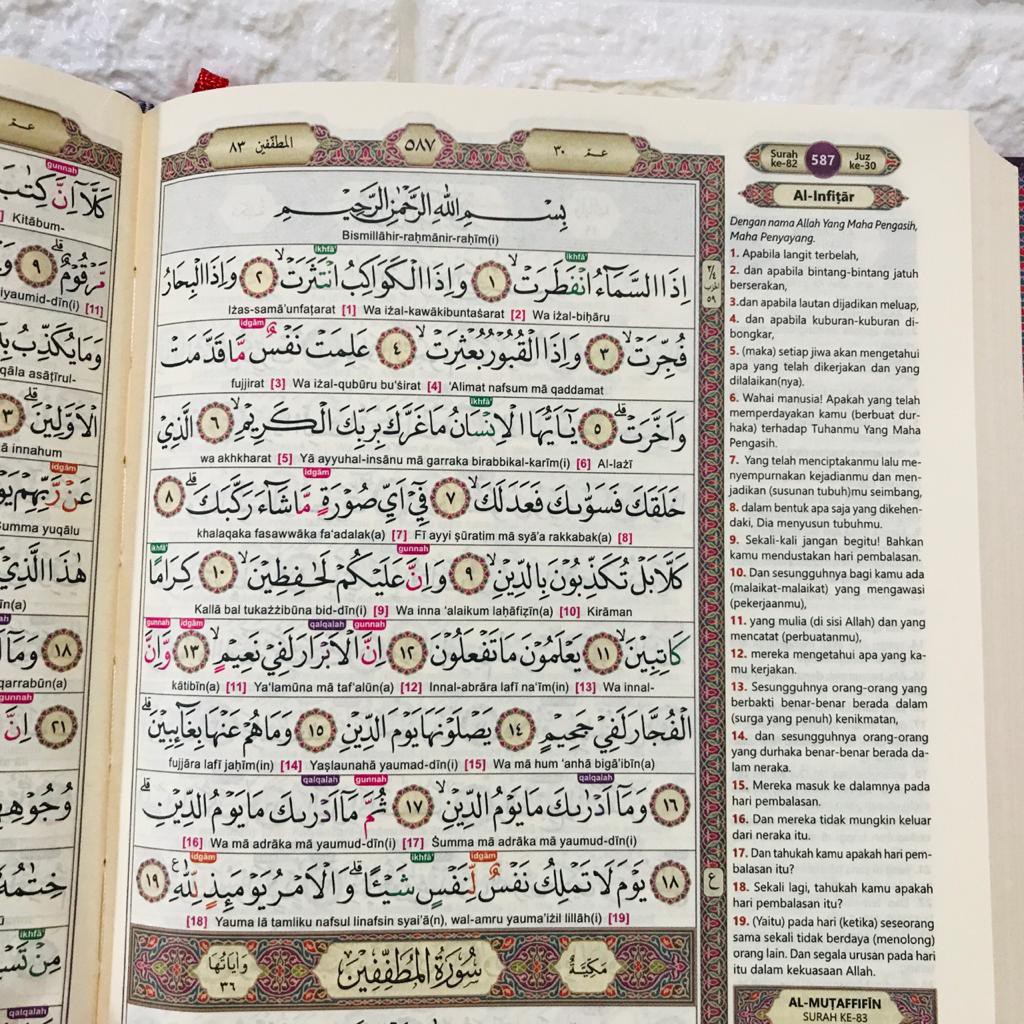 المطففين ٨٣
٥٨٧
عم ٣٠
بِسْمِ اللّٰهِ الرَّحْمٰنِ الرَّحِيْمِ
Bismillāhir-raḥmānir-raḥīm(i)
ikhfā'
ikhfā'
اِذَا السَّمَاۤءُ انْفَطَرَتْۙ ١ وَاِذَا الْكَوَاكِبُ انْتَثَرَتْۙ ٢ وَاِذَا الْبِحَارُ
Iżas-samā'unfaṭarat [1] Wa iżal-kawākibuntaṡarat [2] Wa iżal-biḥāru
idgām
فُجِّرَتْۙ ٣ وَاِذَا الْقُبُوْرُ بُعْثِرَتْۙ ٤ عَلِمَتْ نَفْسٌ مَّا قَدَّمَتْ
fujjirat [3] Wa iżal-qubūru bu'ṡirat [4] 'Alimat nafsum mā qaddamat
ikhfā'
وَاَخَّرَتْۗ ٥ يٰٓاَيُّهَا الْاِنْسَانُ مَا غَرَّكَ بِرَبِّكَ الْكَرِيْمِۙ ٦ الَّذِيْ
wa akhkharat [5] Yā ayyuhal-insānu mā garraka birabbikal-karīm(i) [6] Al-lażī
idgām
خَلَقَكَ فَسَوّٰىكَ فَعَدَلَكَۙ ٧ فِيْٓ اَيِّ صُوْرَةٍ مَّا شَاۤءَ رَكَّبَكَۗ ٨
khalaqaka fasawwāka fa'adalak(a) [7] Fī ayyi ṣūratim mā syā'a rakkabak(a) [8]
gunnah
ikhfā'
كَلَّا بَلْ تُكَذِّبُوْنَ بِالدِّيْنِۙ ٩ وَاِنَّ عَلَيْكُمْ لَحٰفِظِيْنَۙ ١٠ كِرَامًا
Kallā bal tukażżibūna bid-dīn(i) [9] Wa inna 'alaikum laḥāfiẓīn(a) [10] Kirāman
gunnah
qalqalah
idgām
gunnah
كَاتِبِيْنَۙ ١١ يَعْلَمُوْنَ مَا تَفْعَلُوْنَ ١٢ اِنَّ الْاَبْرَارَ لَفِيْ نَعِيْمٍۙ ١٣ وَّاِنَّ
kātibīn(a) [11] Ya'lamūna mā taf'alūn(a) [12] Innal-abrāra lafī na'īm(in) [13] Wa innal-
الْفُجَّارَ لَفِيْ جَحِيْمٍ ١٤ يَصْلَوْنَهَا يَوْمَ الدِّيْنِ ١٥ وَمَا هُمْ عَنْهَا بِغَاۤىِٕبِيْنَۗ
fujjāra lafī jaḥīm(in) [14] Yaṣlaunahā yaumad-dīn(i) [15] Wa mā hum 'anhā bigā'ibīn(a)
qalqalah
gunnah
qalqalah
١٦ وَمَآ اَدْرٰىكَ مَا يَوْمُ الدِّيْنِۙ ١٧ ثُمَّ مَآ اَدْرٰىكَ مَا يَوْمُ الدِّيْنِۗ
[16] Wa mā adrāka mā yaumud-dīn(i) [17] Ṡumma mā adrāka mā yaumud-dīn(i)
idgām
ikhfā'
idgām
١٨ يَوْمَ لَا تَمْلِكُ نَفْسٌ لِّنَفْسٍ شَيْـًٔاۗ وَالْاَمْرُ يَوْمَىِٕذٍ لِّلّٰهِ ࣖ ١٩
[18] Yauma lā tamliku nafsul linafsin syai'ā(n), wal-amru yauma'iżil lillāh(i) [19]
مَكِّيَّةٌ
سُوْرَةُ الْمُطَفِّفِيْنَ
وَاٰيَاتُهَا
٣٦
Surah ke-82
587
Juz ke-30
Al-Infiṭār
Dengan nama Allah Yang Maha Pengasih,
Maha Penyayang.
1. Apabila langit terbelah,
2. dan apabila bintang-bintang jatuh
berserakan,
3.dan apabila lautan dijadikan meluap,
4. dan apabila kuburan-kuburan di-
bongkar,
5. (maka) setiap jiwa akan mengetahui
apa yang telah dikerjakan dan yang
dilalaikan(nya).
6. Wahai manusia! Apakah yang telah
memperdayakan kamu (berbuat dur-
haka) terhadap Tuhanmu Yang Maha
Pengasih.
7. Yang telah menciptakanmu lalu me-
nyempurnakan kejadianmu dan men-
jadikan (susunan tubuh)mu seimbang,
8. dalam bentuk apa saja yang dikehen-
daki, Dia menyusun tubuhmu.
9. Sekali-kali jangan begitu! Bahkan
kamu mendustakan hari pembalasan.
10. Dan sesungguhnya bagi kamu ada
(malaikat-malaikat) yang mengawasi
(pekerjaanmu),
11. yang mulia (di sisi Allah) dan yang
mencatat (perbuatanmu),
12. mereka mengetahui apa yang ka-
mu kerjakan.
13. Sesungguhnya orang-orang yang
berbakti benar-benar berada dalam
(surga yang penuh) kenikmatan,
14. dan sesungguhnya orang-orang
yang durhaka benar-benar berada da-
lam neraka.
15. Mereka masuk ke dalamnya pada
hari pembalasan.
16. Dan mereka tidak mungkin keluar
dari neraka itu.
17. Dan tahukah kamu apakah hari pem-
balasan itu?
18. Sekali lagi, tahukah kamu apakah
hari pembalasan itu?
19. (Yaitu) pada hari (ketika) seseorang
sama sekali tidak berdaya (menolong)
orang lain. Dan segala urusan pada hari
itu dalam kekuasaan Allah.
AL-MUṬAFFIFĪN
SURAH KE-83
عم
gunnah
كَلَّآ اِنَّ كِتٰبَ
Kitābum-
مَّرْقُوْمٌۗ ٩
iyaumid-dīn(i) [11]
وَمَا يُكَذِّبُ
qāla asāṭīrul-
الْاَوَّلِيْنَۗ
innahum
idgām
عَنْ رَّبِّهِمْ
umma yuqālu
هٰذَا الَّذِيْ
īn(a)
١٨
qarrabūn(a)
gunnah
٢١ اِنَّ
وُجُوْهِهِمْ
خِتٰمُهٗ
ikhfā'
qalqalah